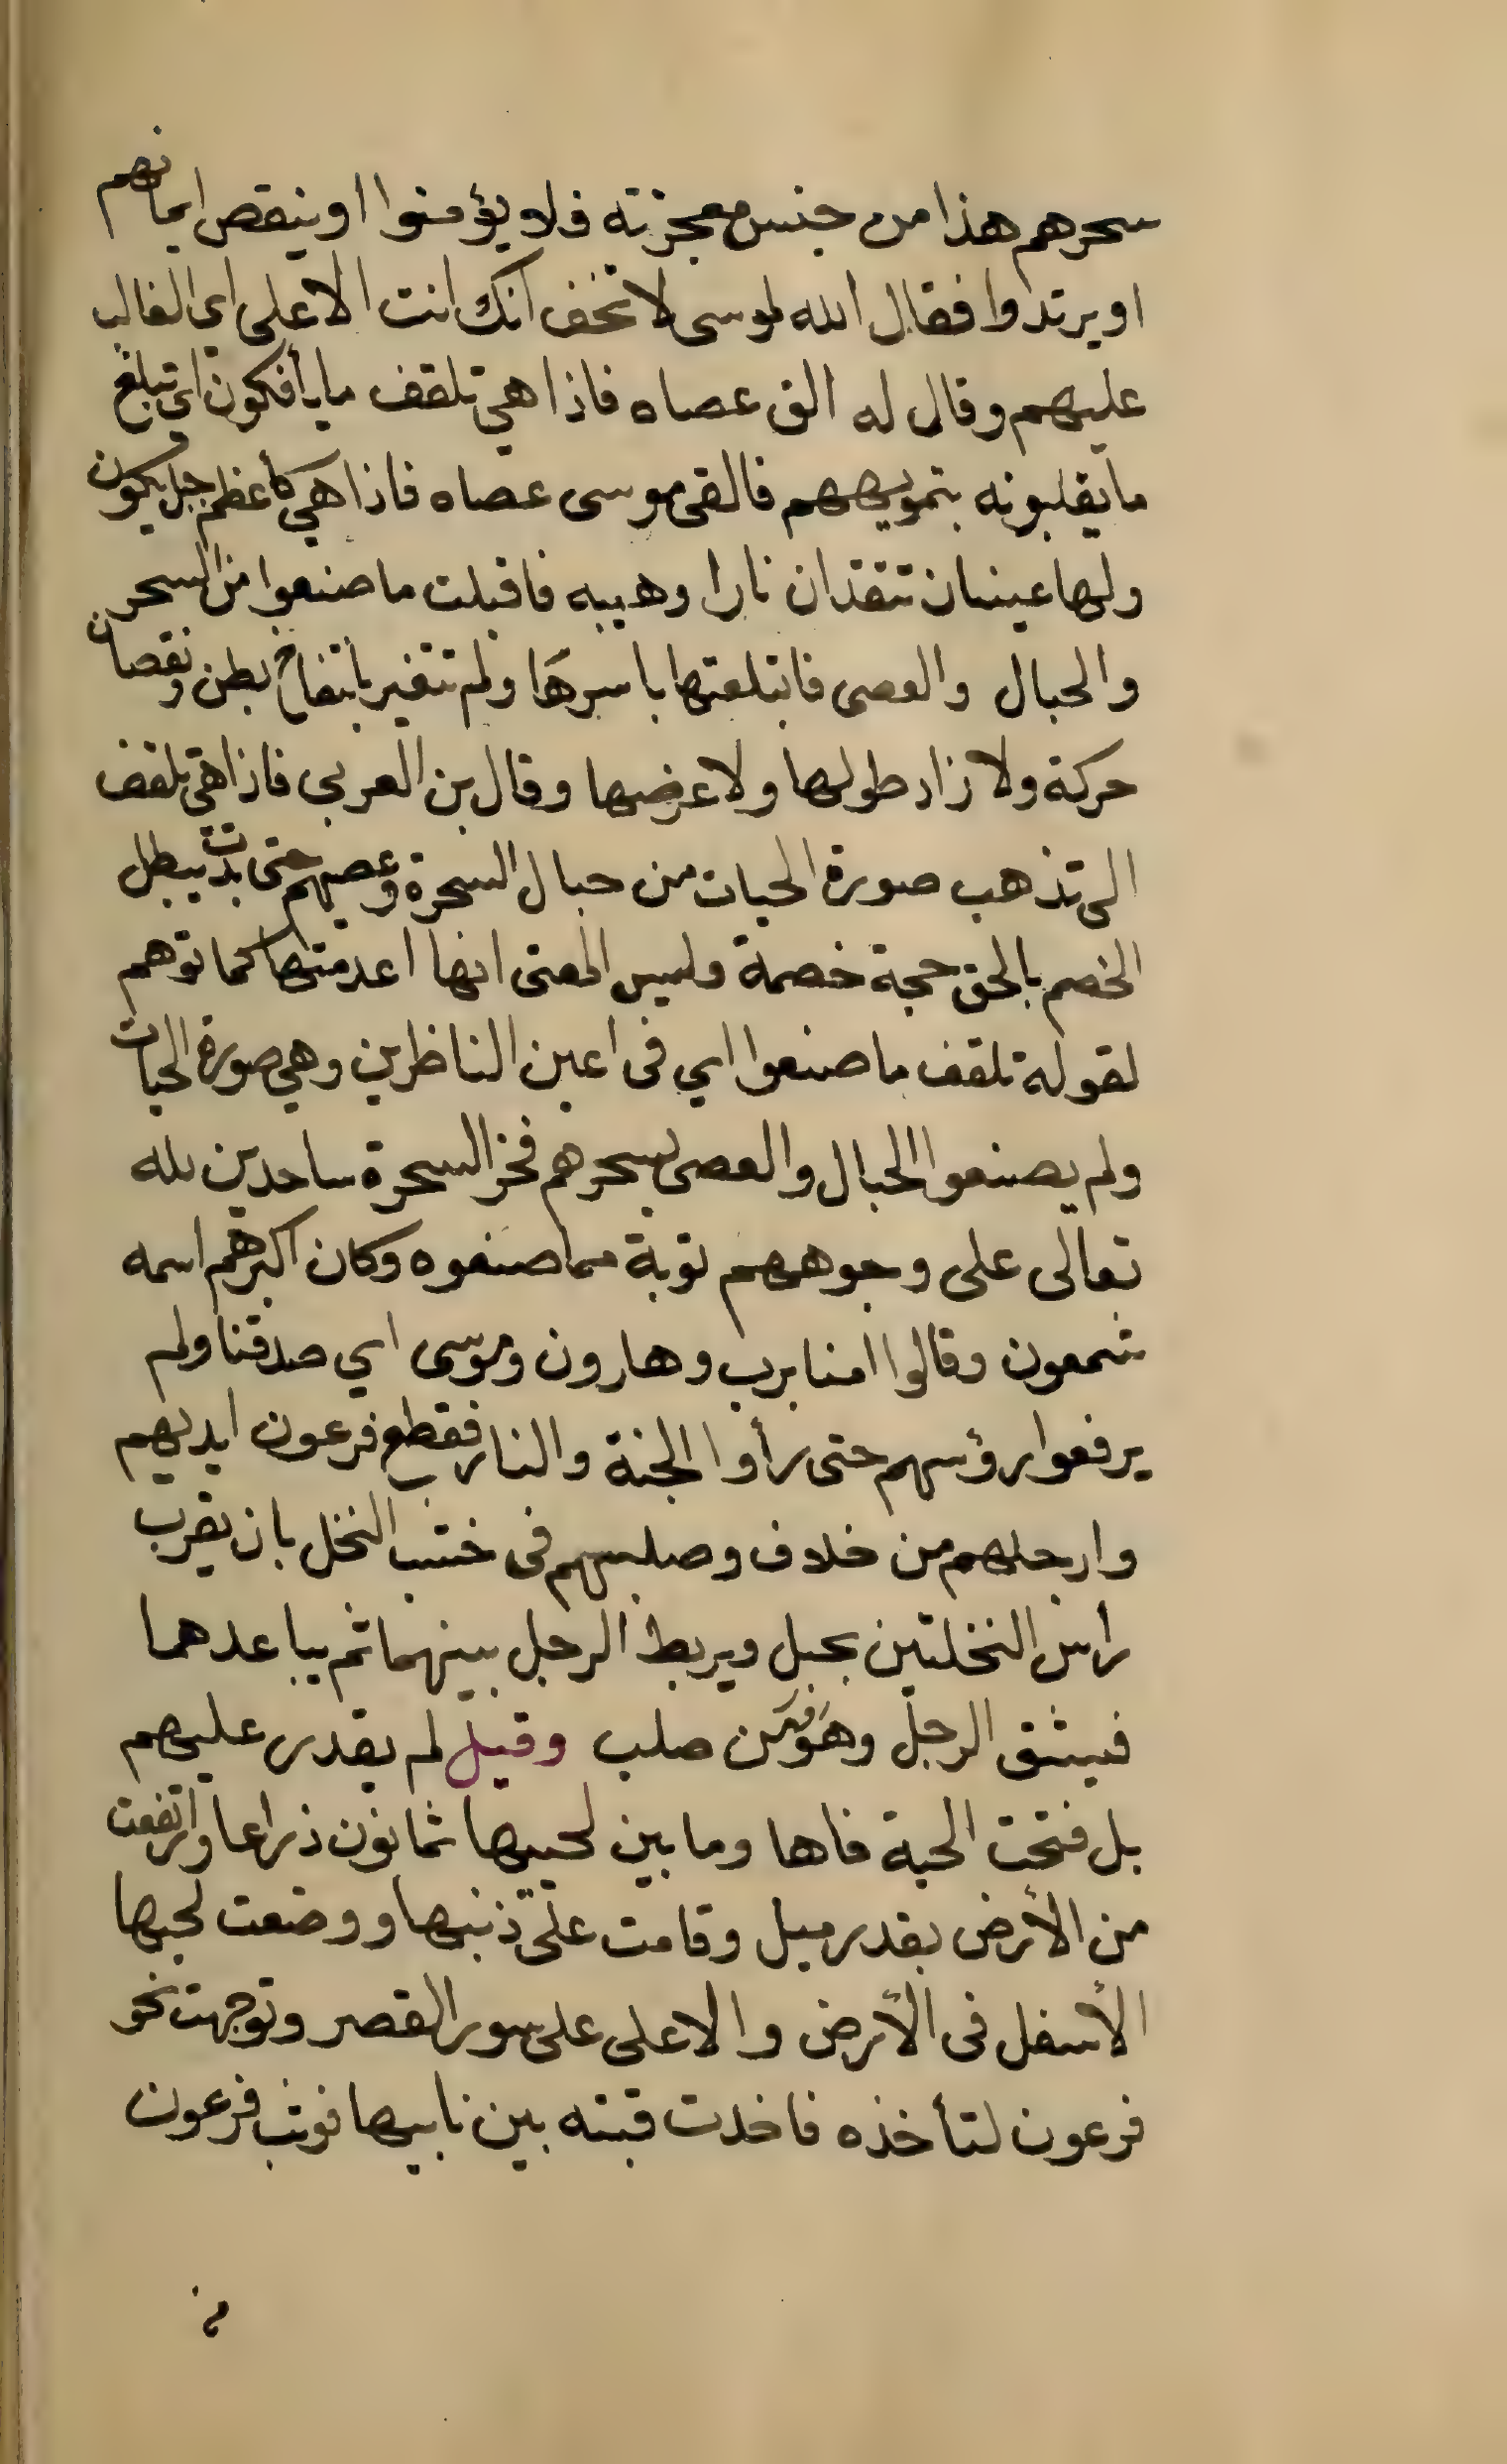 سحرهم هذا من جنس معجزته فلا يؤمنوا او ينقص ايمانهم
او يرتدوا فقال الله لموسى لا تخف انك انت الاعلى اي الغالب
عليهم وقال له الق عصاه فاذا هي تلقف ما يأفكون اي تبلغ
ما يقلبونه بتمويههم فالقى موسى عصاه فاذا هي كأعظم جبل يكون
ولها عينان تتقدان نارا وهيبه فاقبلت ما صنعوا من السحر
والحبال والعصى فابتلعتها باسرها ولم تتغير بانتفاخ بطن ونقصان
حركة ولا زاد طولها ولا عرضها وقال بن العربى فاذا هي تلقف
الى تذهب صورة الحيات من حبال السحرة وعصيهم حتى بدت يبطل
الخصم بالحق حجة خصمة وليس المعنى انها اعدمتها كما توهم
لقوله تلقف ما صنعوا اي فى اعين الناظرين وهي صورة الحيات
ولم يصنعوا الحبال والعصى بسحرهم فخر السحرة ساجدين لله
تعالى على وجوههم توبة مما صنعوه وكان اكبرهم اسمه
شمعون وقالوا امنا برب وهارون وموسى اي صدقنا ولم
يرفعوا رؤسهم حتى رأوا الجنة والنار فقطع فرعون ايديهم
وارجلهم من خلاف وصلبهم فى خشب النخل بان يقرب
راس النخلتين بحبل ويربط الرجل بينهما ثم يباعدهما
فيشق الرجل وهو صلب وقيل لم يقدر عليهم
بل فتحت الحية فاها وما بين لحييها ثمانون ذراعا وارتفعت
من الأرض بقدر ميل وقامت على ذنبها ووضعت لحيها
الأسفل فى الأرض والاعلى على سور القصر وتوجهت نحو
فرعون لتأخذه فاخذت قبته بين نابيها فوثب فرعون